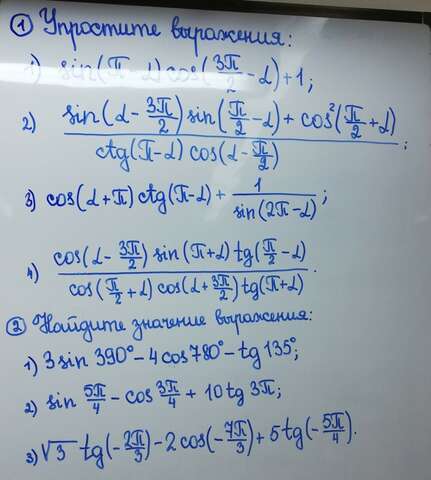 ① Упростите выражения:
1) sin(π-α)cos(3π/2-α)+1;
2) (sin(α-3π/2)sin(π/2-α)+cos²(π/2+α))/(ctg(π-α)cos(α-π/2));
3) cos(α+π)ctg(π-α)+1/sin(2π-α);
4) (cos(α-3π/2)sin(π+α)tg(π/2-α))/(cos(π/2+α)cos(α+3π/2)tg(π+α)).
② Найдите значение выражения:
1) 3sin390°-4cos780°-tg135°;
2) sin 5π/4 - cos 3π/4 + 10tg3π;
3) √3 tg(-2π/3)-2cos(-7π/3)+5tg(-5π/4).